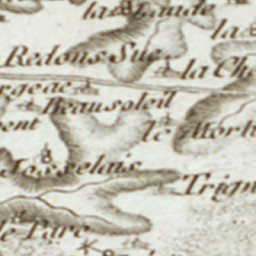 la Chaude
la
Redons Sue
la Ch
rgeac
Beausoleil
ent
le Morh
Josselais
Trign
le Parc